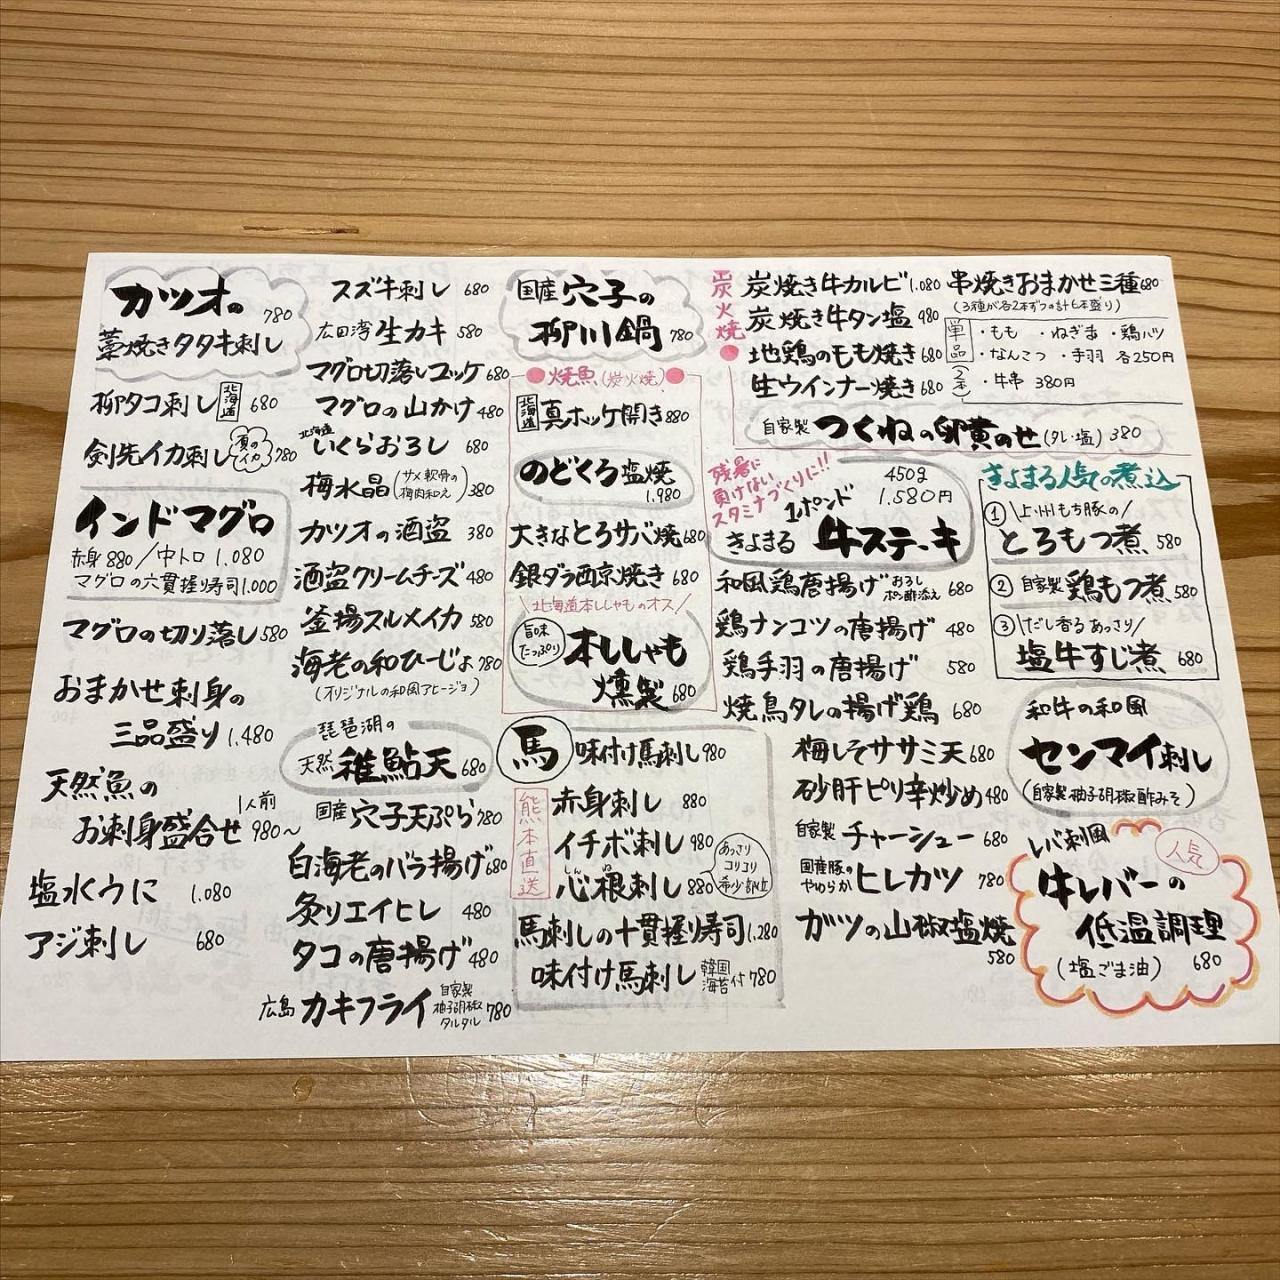 カツオの 780
藁焼きタタキ刺し
柳タコ刺し 北海道 680
剣先イカ刺し 夏のイカ 780
インドマグロ
赤身 880 / 中トロ 1.080
マグロの六貫握り寿司 1.000
マグロの切り落し 580
おまかせ刺身の
三品盛り 1.480
天然魚の
お刺身盛合せ 1人前 980~
塩水うに 1.080
アジ刺し 680
スズキ刺し 680
広田湾 生カキ 580
マグロ切落しユッケ 680
マグロの山かけ 480
北海道 いくらおろし 680
梅水晶 (サメ軟骨の梅肉和え) 380
カツオの酒盗 380
酒盗クリームチーズ 480
釜揚スルメイカ 580
海老の和ひーじょ 780
(オリジナルの和風アヒージョ)
琵琶湖の
天然 稚鮎天 680
国産 穴子天ぷら 780
白海老のバラ揚げ 680
炙りエイヒレ 480
タコの唐揚げ 480
広島 カキフライ 自家製 柚子胡椒タルタル 780
国産 穴子の
柳川鍋 780
焼魚 (炭火焼)
北海道 真ホッケ開き 880
のどぐろ塩焼
1.980
大きなとろサバ焼 680
銀ダラ西京焼き 680
\北海道本ししゃものオス/
旨味たっぷり 本ししゃも
燻製 680
馬 味付け馬刺し 980
熊本直送
赤身刺し 880
イチボ刺し 980
心根刺し 880 あっさりコリコリ希少部位
しんね
馬刺しの十貫握り寿司 1.280
味付け馬刺し 韓国海苔付 780
炭火焼
炭焼き牛カルビ 1.080
炭焼き牛タン塩 980
地鶏のもも焼き 680
生ウインナー焼き 680
串焼きおまかせ三種 680
(3種が各2本ずつの計6本盛り)
単品 ・もも ・ねぎま ・鶏ハツ
・なんこつ ・手羽 各250円
(2本) ・牛串 380円
自家製 つくねの卵黄のせ (タレ・塩) 380
残暑に
負けない
スタミナづくりに!!
1ポンド 450g 1.580円
きよまる 牛ステーキ
和風鶏唐揚げ おろしポン酢添え 680
鶏ナンコツの唐揚げ 480
鶏手羽の唐揚げ 580
焼鳥タレの揚げ鶏 680
梅しそササミ天 680
砂肝ピリ辛炒め 480
自家製 チャーシュー 680
国産豚のやわらか ヒレカツ 780
ガツの山椒塩焼
580
きよまる人気の煮込
① \上州もち豚の/
とろもつ煮 580
② 自家製 鶏もつ煮 580
③ \だし香るあっさり/
塩牛すじ煮 680
和牛の和風
センマイ刺し
(自家製柚子胡椒酢みそ)
レバ刺風 人気
牛レバーの
低温調理
(塩ごま油) 680